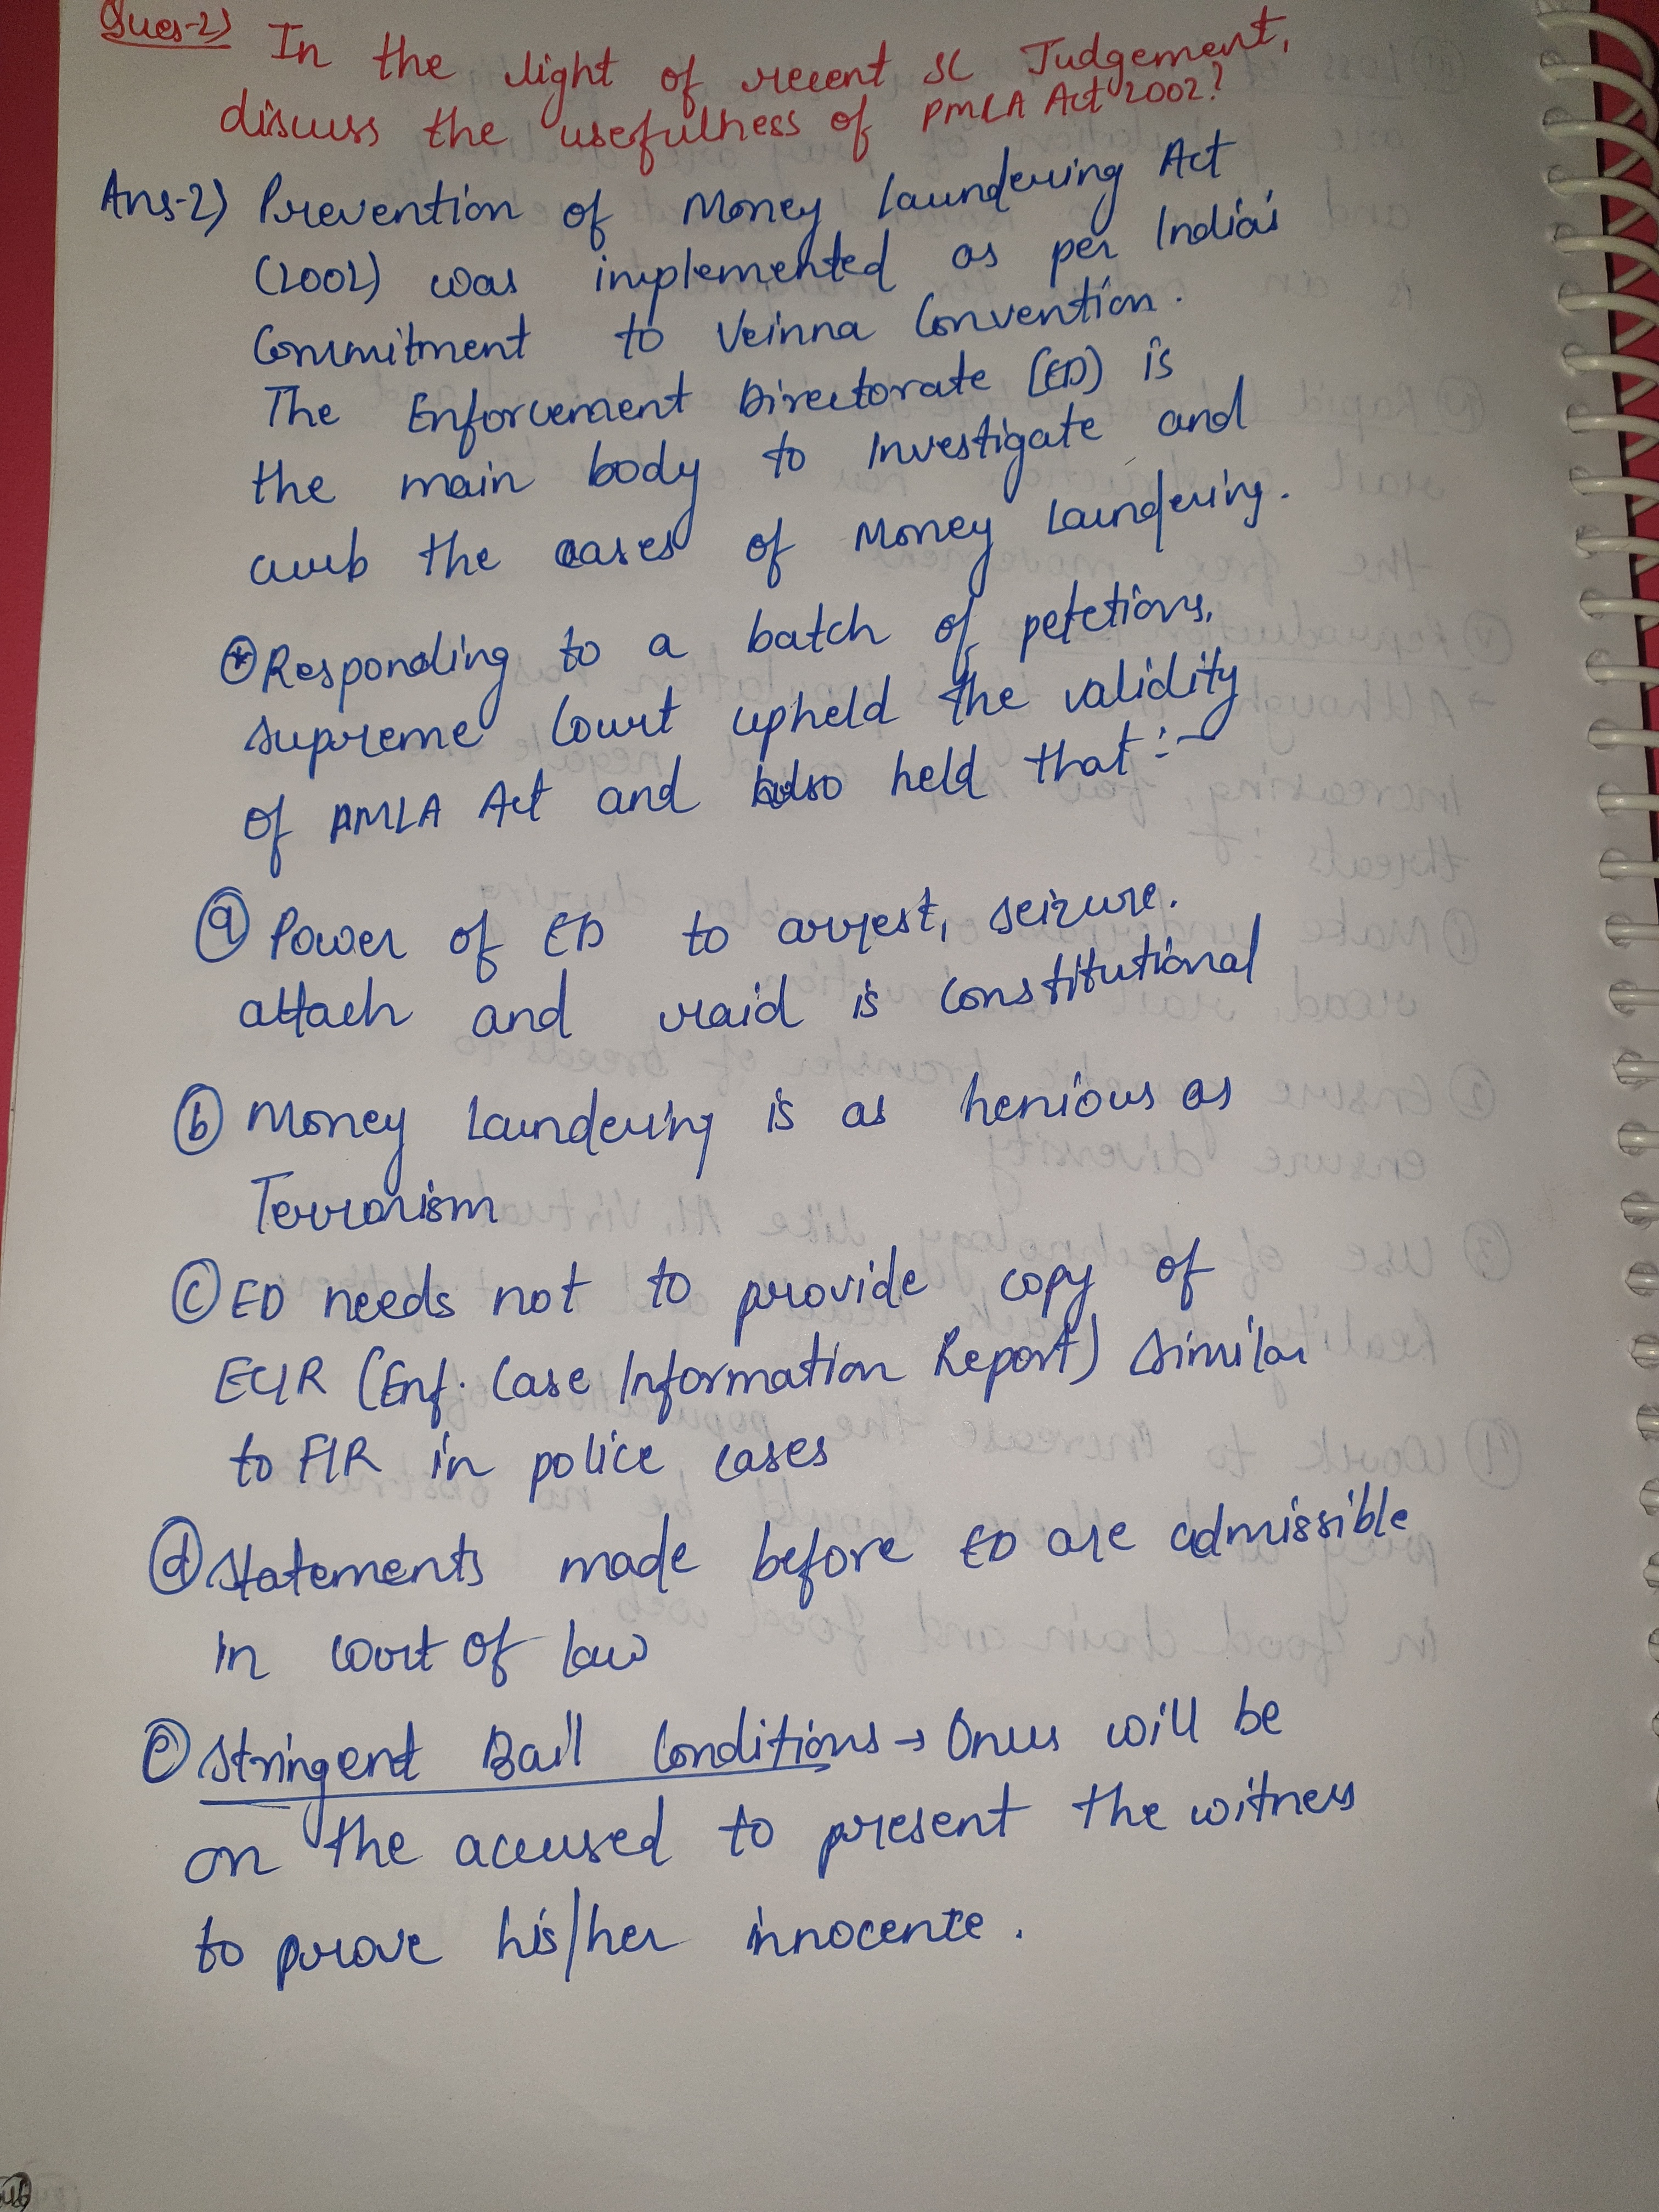 Ques-2) In the light of recent SC Judgement,
discuss the usefulness of PMLA Act 2002?
Ans-2) Prevention of Money Laundering Act
(2002) was implemented as per India's
Commitment to Veinna Convention.
The Enforcement Directorate (ED) is
the main body to Investigate and
curb the cases of Money Laundering.
* Responding to a batch of petetions,
Supreme Court upheld the validity
of PMLA Act and also held that :-
(a) Power of ED to arrest, seizure.
attach and raid is Constitutional
(b) Money Laundering is as henious as
Terrorism
(c) ED needs not to provide copy of
ECIR (Enf. Case Information Report) Similar
to FIR in police cases
(d) Statements made before ED are admissible
in court of law
(e) Stringent Bail Conditions → Onus will be
on the accused to present the witness
to prove his/her innocence.